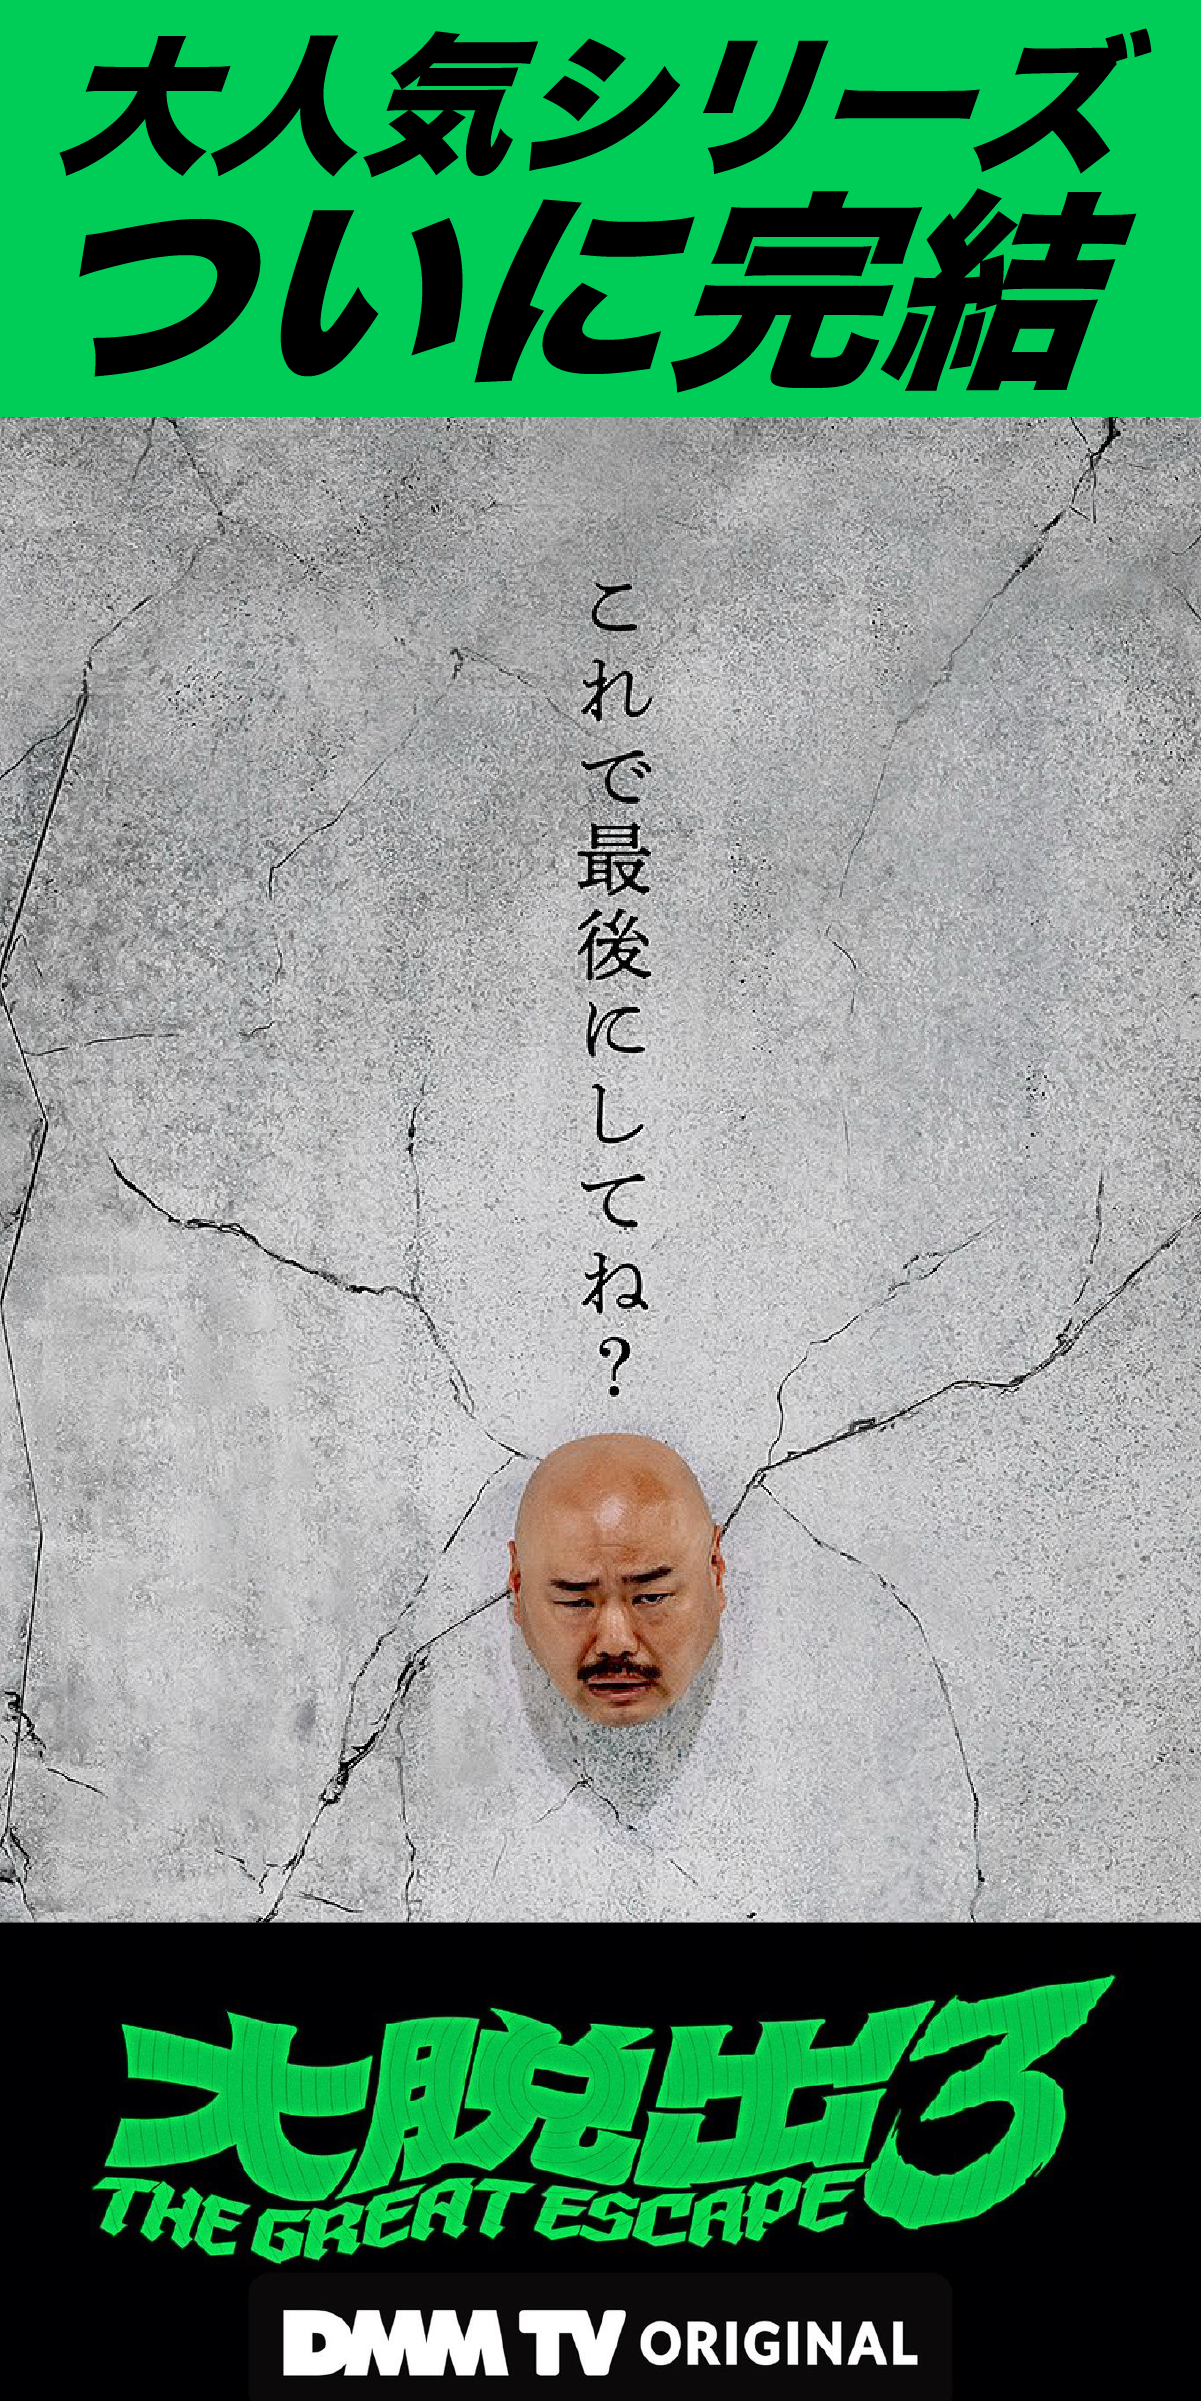 大人気シリーズ
ついに完結
これで最後にしてね?
大脱出3
THE GREAT ESCAPE
DMM TV ORIGINAL